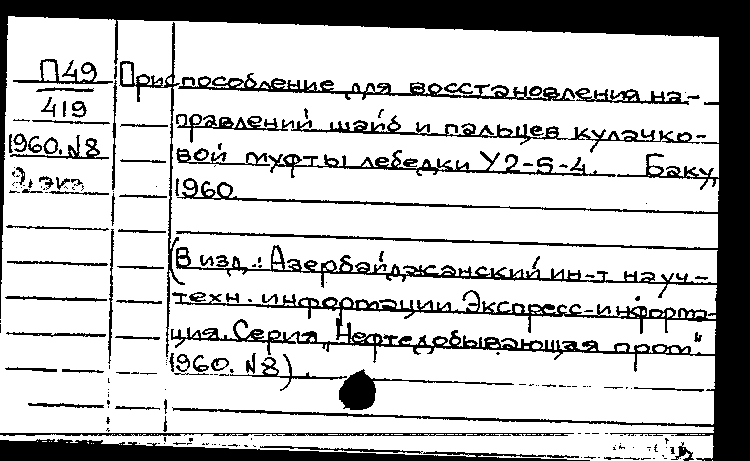 П49
419
1960. N8
2. экз
Приспособление для восстановления на-
правлений шайб и пальцев кулачко-
вой муфты лебедки У2-5-4. Баку,
1960.
(В изд.: Азербайджанский ин-т науч.-
техн. информации. Экспресс-информа-
ция. Серия "Нефтедобывающая пром".
1960. N8).